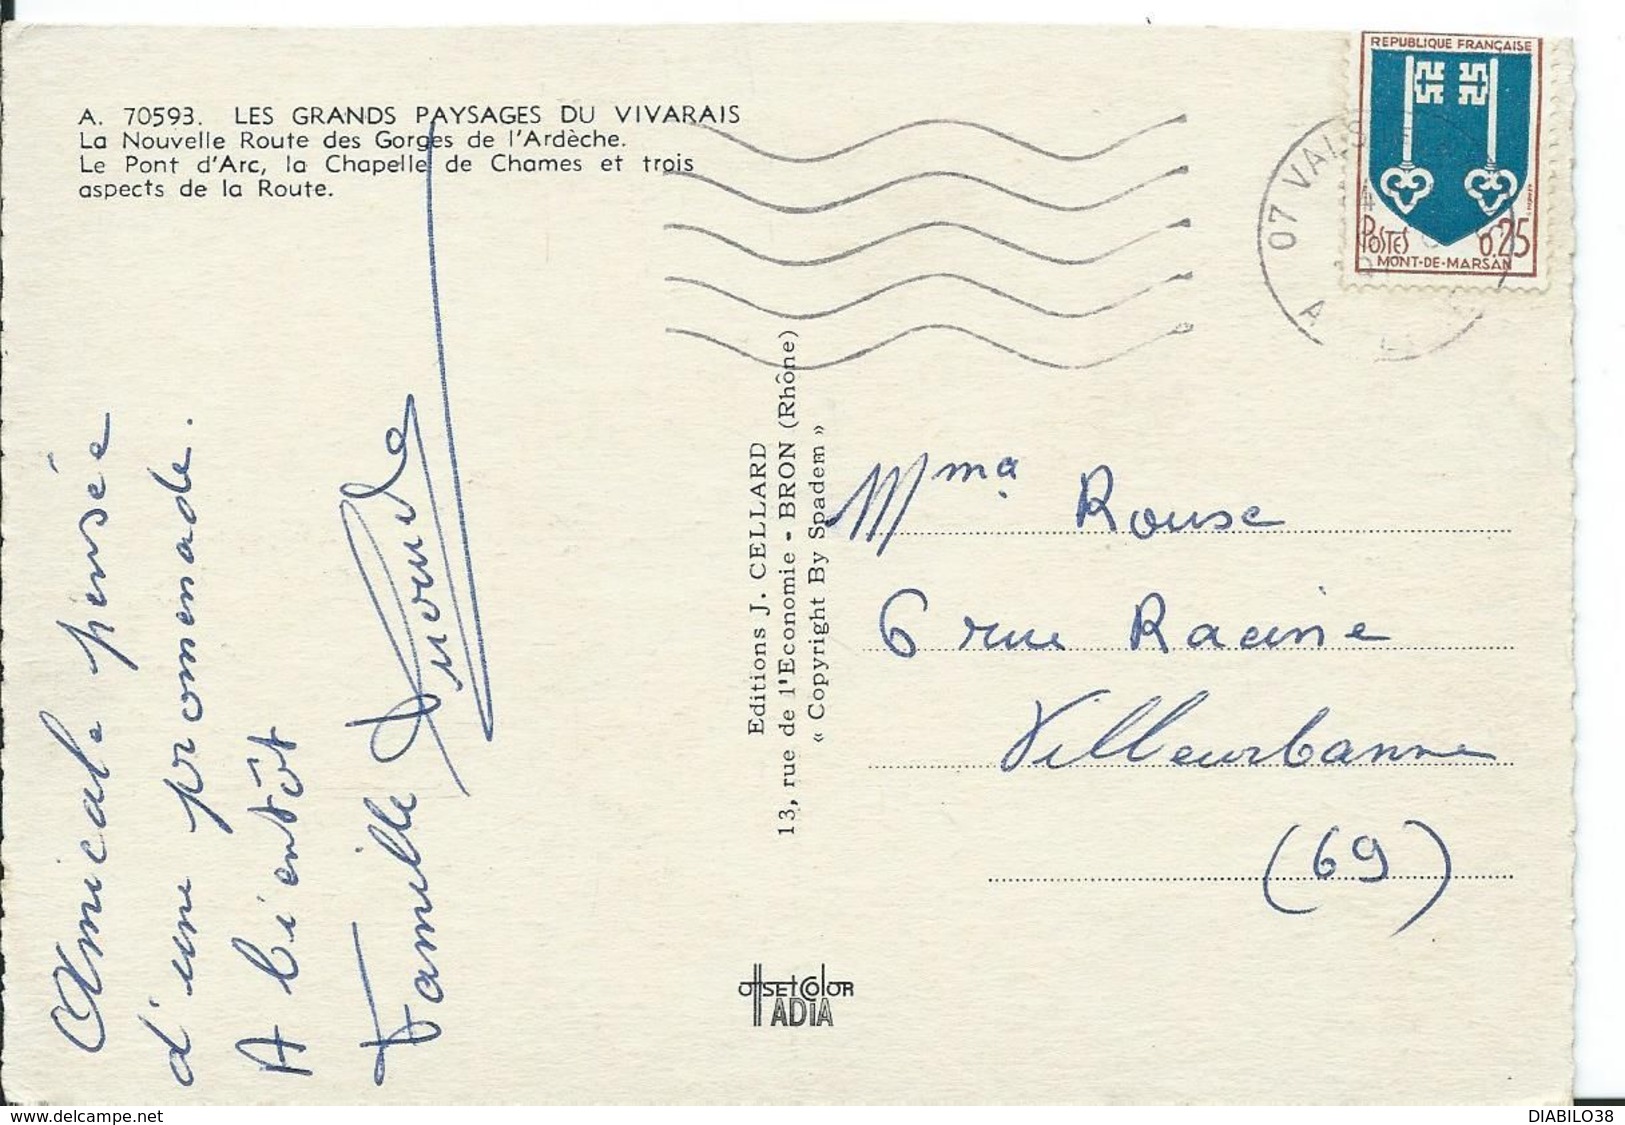 A. 70593. LES GRANDS PAYSAGES DU VIVARAIS
La Nouvelle Route des Gorges de l'Ardèche.
Le Pont d'Arc, la Chapelle de Chames et trois
aspects de la Route.
Amicale pensée
d'une promenade.
A bientôt
Famille
Editions J. CELLARD
13, rue de l'Economie - BRON (Rhône)
« Copyright By Spadem »
offSETCOlOR
ADIA
REPUBLIQUE FRANÇAISE
POSTES 0.25
MONT-DE-MARSAN
07 VALS
Mme Rouse
6 rue Racine
Villeurbanne
(69)
www.delcampe.net
DIABILO38